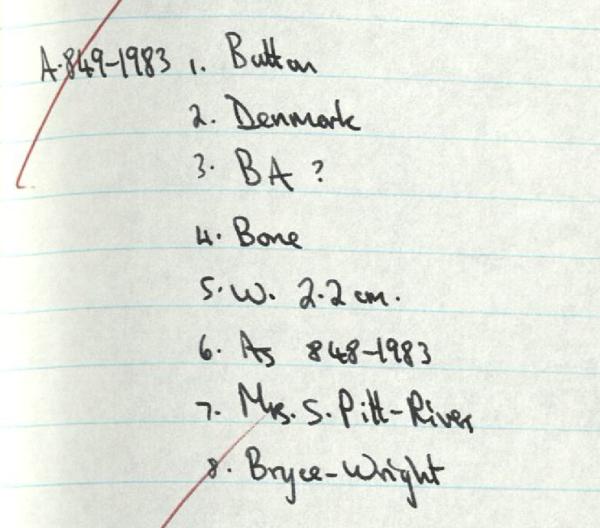 A.849-1983 1. Button
2. Denmark
3. BA ?
4. Bone
5. W. 2.2 cm.
6. As 848-1983
7. Mrs. S. Pitt-Rivers
8. Bryce-Wright